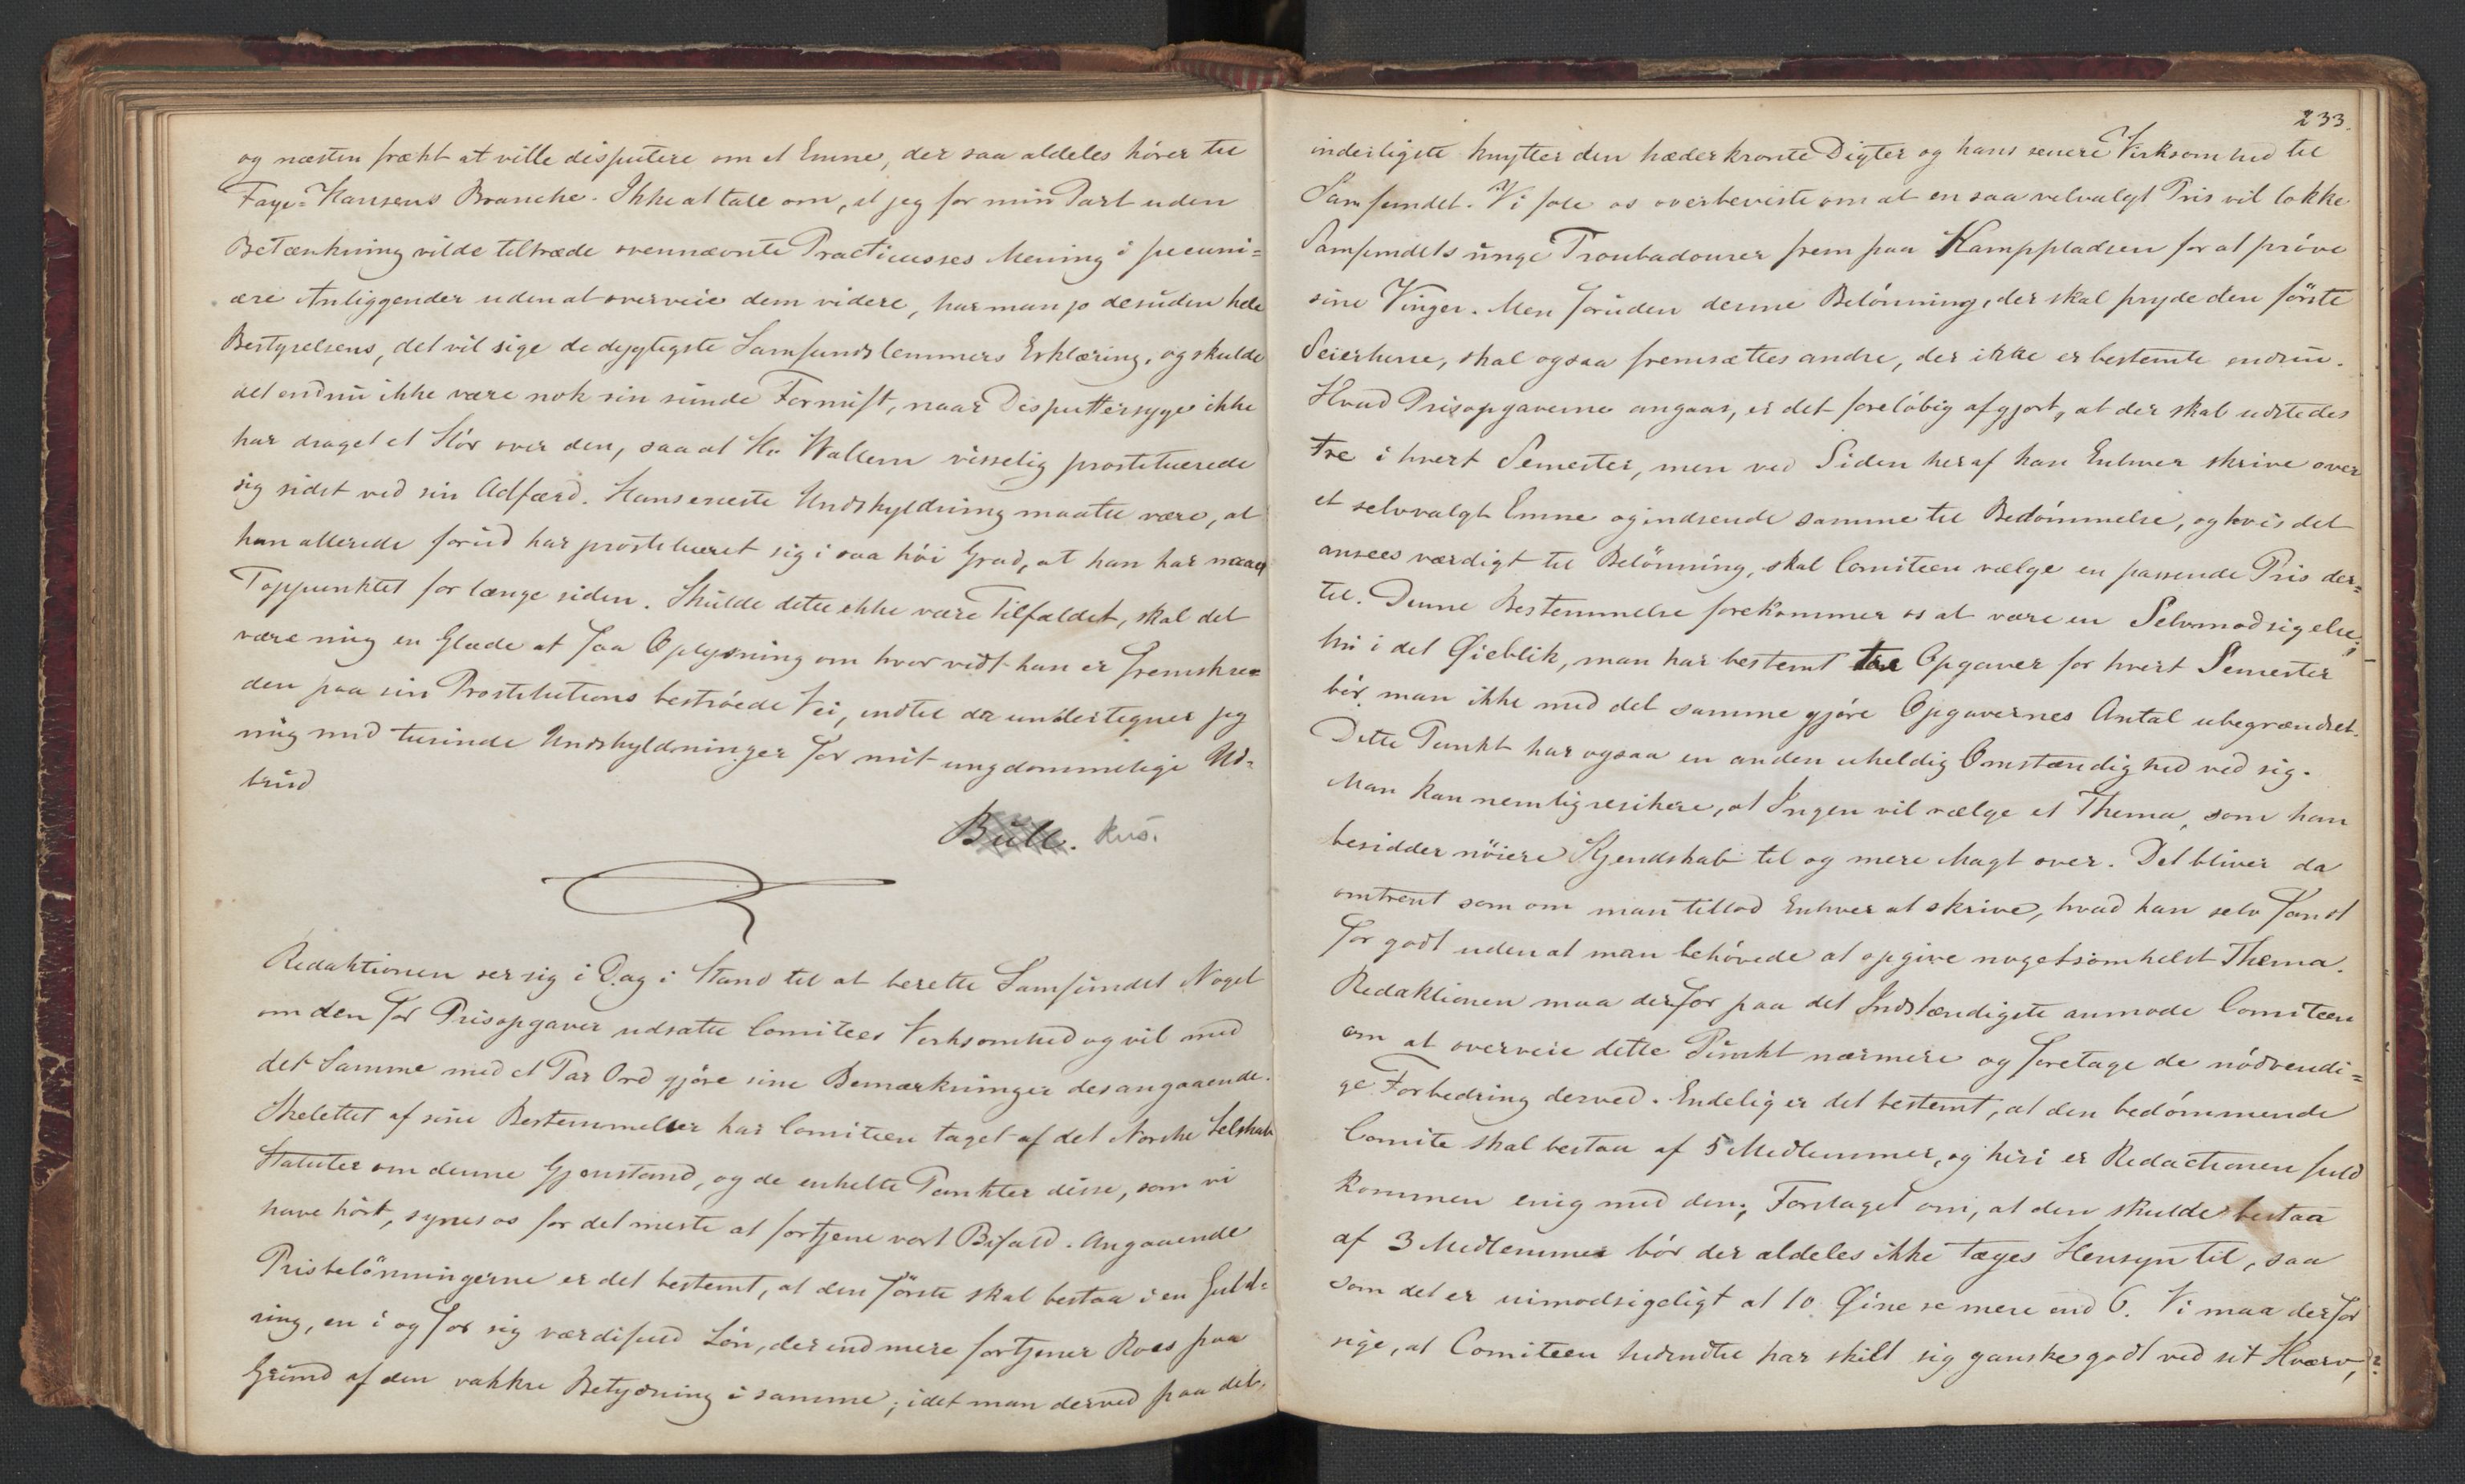 og næsten frækt at ville disputere om et Emne, der saa aldeles hörer til
Faye-Hansens Branche. Ikke at tale om, at jeg for min Part uden
Betænkning vilde tiltræde ovennævnte Practicusses Mening i pecuni=
ære Anliggender uden at overveie dem videre, har man jo desuden hele
Bestyrelsens, det vil sige de dygtigste Samfundslemmers Erklæring, og skulde
det endnu ikke være nok sin sunde Fornuft, naar Disputtersyge ikke
har draget et Slör over den, saa at Hr. Wallem visselig prostituerede
sig sidst ved sin Adfærd. Hans eneste Undskyldning maatte være, at
han allerede forud har prostitueret sig i saa höi Grad, at han har naaet
Toppunktet for længe siden. Skulde dette ikke være Tilfældet, skal det
være mig en Glæde at faa Oplysning om hvor vidt han er fremskre=
den paa sin Prostitutions beströede Vei, indtil da undertegner jeg
mig med tusinde Undskyldninger for mit ungdommelige Ud=
brud
Bull. Rus.
Redaktionen ser sig i Dag i Stand til at berette Samfundet Noget
om den for Prisopgaver udsatte Comitees Virksomhed og vil med
det Samme med et Par Ord gjöre sine Bemærkninger desangaaende.
Skelettet af sine Bestemmelser har Comiteen taget af det Norske Selskabs
Statuter om denne Gjenstand, og de enkelte Punkter disse, som vi
have hört, synes os for det meste at fortjene vort Bifald. Angaaende
Prisbelönningerne er det bestemt, at den förste skal bestaa i en Guld=
ring, en i og for sig værdifuld Lön, der end mere fortjener Roes paa
Grund af den vakkre Betydning i samme; idet man derved paa det
233.
inderligste knytter den hæderkronte Digter og hans senere Virksomhed til
Samfundet. Vi föle os overbeviste om at en saa velvalgt Pris vil lokke
Samfundets unge Troubadourer frem paa Kamppladsen for at pröve
sine Vinger. Men foruden denne Belönning, der skal pryde den förste
Seierherre, skal ogsaa fremsættes andre, der ikke er bestemte endnu.
Hvad Prisopgaverne angaar, er det forelöbig afgjort, at der skal udstedes
tre i hvert Semester, men ved Siden heraf kan Enhver skrive over
et selvvalgt Emne og indsende samme til Bedömmelse, og hvis det
ansees værdigt til Belönning, skal Comiteen vælge en passende Pris der=
til. Denne Bestemmelse forekommer os at være en Selvmodsigelse;
thi i det Øieblik, man har bestemt tre Opgaver for hvert Semester
bör man ikke med det samme gjöre Opgavernes Antal ubegrændset.
Dette Punkt har ogsaa en anden uheldig Omstændighed ved sig.
Man kan nemlig resikere, at Ingen vil vælge et Thema, som han
besidder nöiere Kjendskab til og mere Magt over. Det bliver da
omtrent som om man tillod Enhver at skrive, hvad han selv fandt
for godt uden at man behövede at opgive nogetsomhelst Thema.
Redaktionen maa derfor paa det Indstændigste anmode Comiteen
om at overveie dette Punkt nærmere og foretage de nödvendi=
ge Forbedring derved. Endelig er det bestemt, at den bedömmende
Comite skal bestaa af 5 Medlemmer, og heri er Redactionen fuld
kommen enig med den; Forslaget om, at den skulde bestaa
af 3 Medlemmer bör der aldeles ikke tages Hensyn til, saa
som det er uimodsigeligt at 10 Øine se mere end 6. Vi maa derfor
sige, at Comiteen hidindtil har skilt sig ganske godt ved sit Hværv,